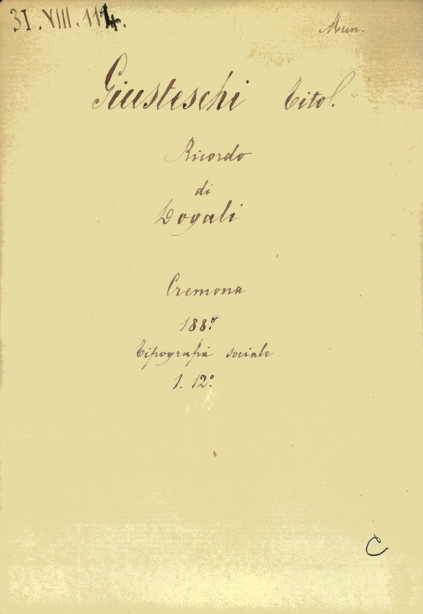 31.VIII.114.
Mun.
Giusteschi Titol.
Ricordo
di
Dogali
Cremona
1887
Tipografia sociale
1. 12°
C